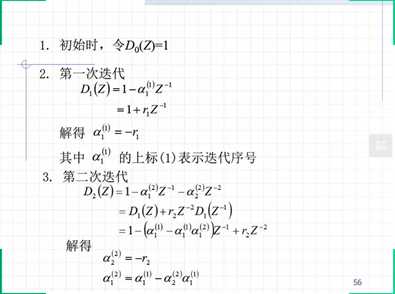 1. 初始时，令D₀(Z)=1
2. 第一次迭代
D₁(Z)=1−α₁⁽¹⁾Z⁻¹
=1+r₁Z⁻¹
解得 α₁⁽¹⁾=−r₁
其中 α₁⁽¹⁾ 的上标(1)表示迭代序号
3. 第二次迭代
D₂(Z)=1−α₁⁽²⁾Z⁻¹−α₂⁽²⁾Z⁻²
=D₁(Z)+r₂Z⁻²D₁(Z⁻¹)
=1−(α₁⁽¹⁾−α₁⁽¹⁾α₂⁽²⁾)Z⁻¹+r₂Z⁻²
解得
α₂⁽²⁾=−r₂
α₁⁽²⁾=α₁⁽¹⁾−α₂⁽²⁾α₁⁽¹⁾
56